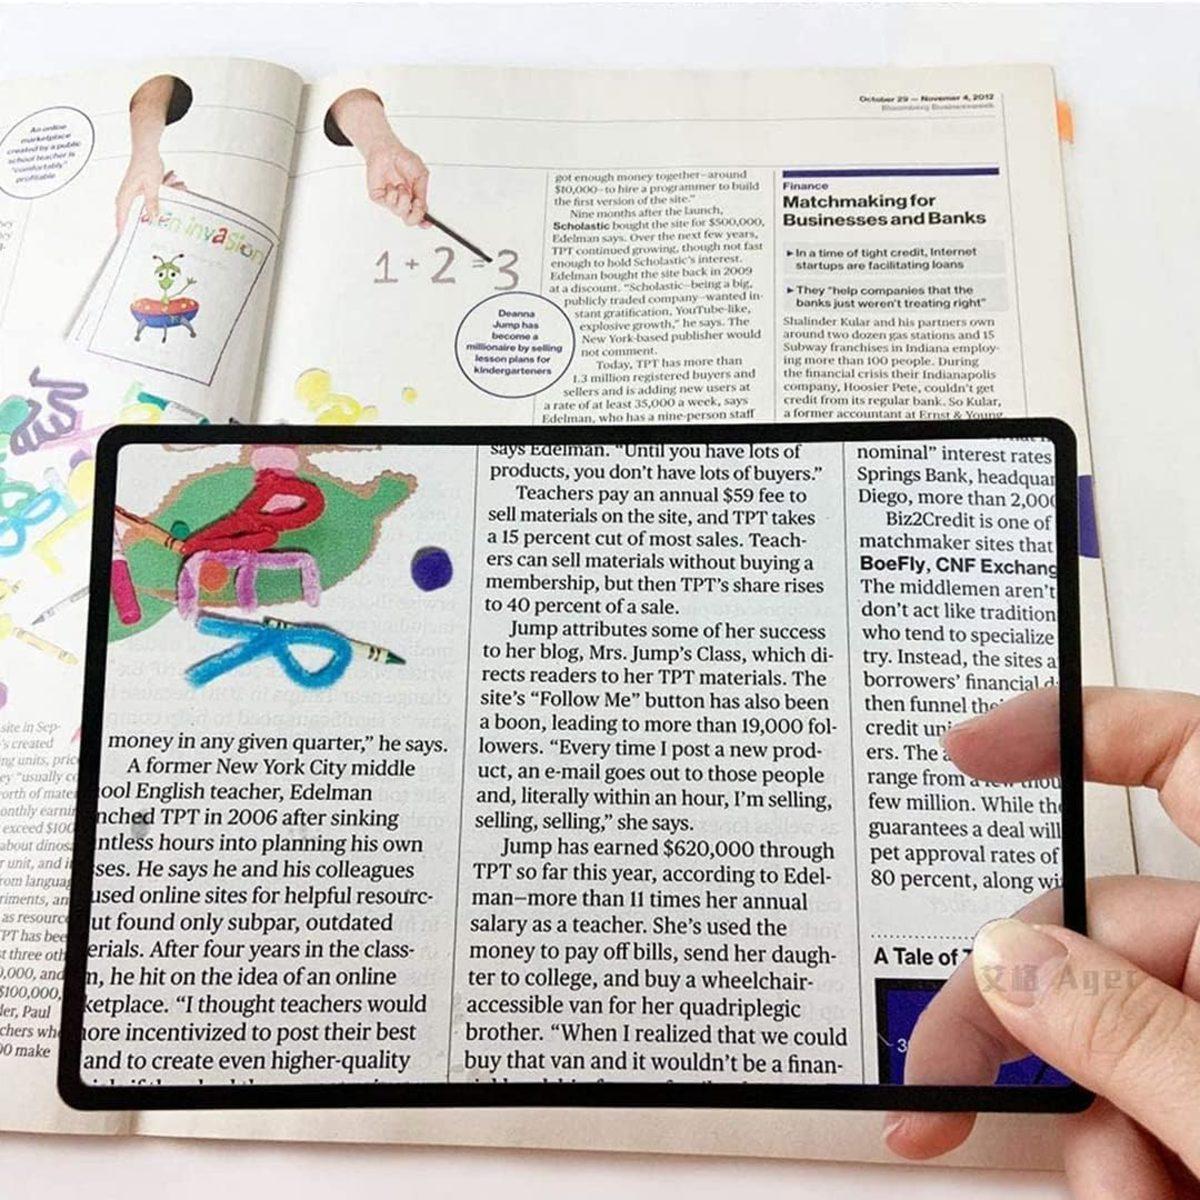 October 29 — November 4, 2012
Bloomberg Businessweek
An online
marketplace
created by a public
school teacher is
"comfortably"
profitable
alien invasion
1+2=3
Deanna
Jump has
become a
millionaire by selling
lesson plans for
kindergarteners
site in Sep-
's created
ng units, pric
ey "usually co
orth of mate
onthly earni
exceed $100
about dinos
r unit, and i
rom languag
riments, an
as resource
PT has bee
t three oth
0,000, and
$100,000,
ler, Paul
chers wh
00 make
money in any given quarter," he says.
A former New York City middle
ool English teacher, Edelman
nched TPT in 2006 after sinking
ntless hours into planning his own
ses. He says he and his colleagues
used online sites for helpful resourc-
ut found only subpar, outdated
erials. After four years in the class-
m, he hit on the idea of an online
ketplace. "I thought teachers would
ore incentivized to post their best
and to create even higher-quality
got enough money together—around
$10,000—to hire a programmer to build
the first version of the site."
Nine months after the launch,
Scholastic bought the site for $500,000,
Edelman says. Over the next few years,
TPT continued growing, though not fast
enough to hold Scholastic's interest.
Edelman bought the site back in 2009
at a discount. "Scholastic—being a big,
publicly traded company—wanted in-
stant gratification, YouTube-like,
explosive growth," he says. The
New York-based publisher would
not comment.
Today, TPT has more than
1.3 million registered buyers and
sellers and is adding new users at
a rate of at least 35,000 a week, says
Edelman, who has a nine-person staff
says Edelman. "Until you have lots of
products, you don't have lots of buyers."
Teachers pay an annual $59 fee to
sell materials on the site, and TPT takes
a 15 percent cut of most sales. Teach-
ers can sell materials without buying a
membership, but then TPT's share rises
to 40 percent of a sale.
Jump attributes some of her success
to her blog, Mrs. Jump's Class, which di-
rects readers to her TPT materials. The
site's "Follow Me" button has also been
a boon, leading to more than 19,000 fol-
lowers. "Every time I post a new prod-
uct, an e-mail goes out to those people
and, literally within an hour, I'm selling,
selling, selling," she says.
Jump has earned $620,000 through
TPT so far this year, according to Edel-
man—more than 11 times her annual
salary as a teacher. She's used the
money to pay off bills, send her daugh-
ter to college, and buy a wheelchair-
accessible van for her quadriplegic
brother. "When I realized that we could
buy that van and it wouldn't be a finan-
Finance
Matchmaking for
Businesses and Banks
▸ In a time of tight credit, Internet
startups are facilitating loans
▸ They "help companies that the
banks just weren't treating right"
Shalinder Kular and his partners own
around two dozen gas stations and 15
Subway franchises in Indiana employ-
ing more than 100 people. During
the financial crisis their Indianapolis
company, Hoosier Pete, couldn't get
credit from its regular bank. So Kular,
a former accountant at Ernst & Young,
nominal" interest rates
Springs Bank, headquar
Diego, more than 2,000
Biz2Credit is one of
matchmaker sites that
BoeFly, CNF Exchang
The middlemen aren't
don't act like tradition
who tend to specialize
try. Instead, the sites a
borrowers' financial d
then funnel the
credit uni
ers. The a
range from a few thou
few million. While the
guarantees a deal will
pet approval rates of
80 percent, along wi
A Tale of T
3
艾格 Ager